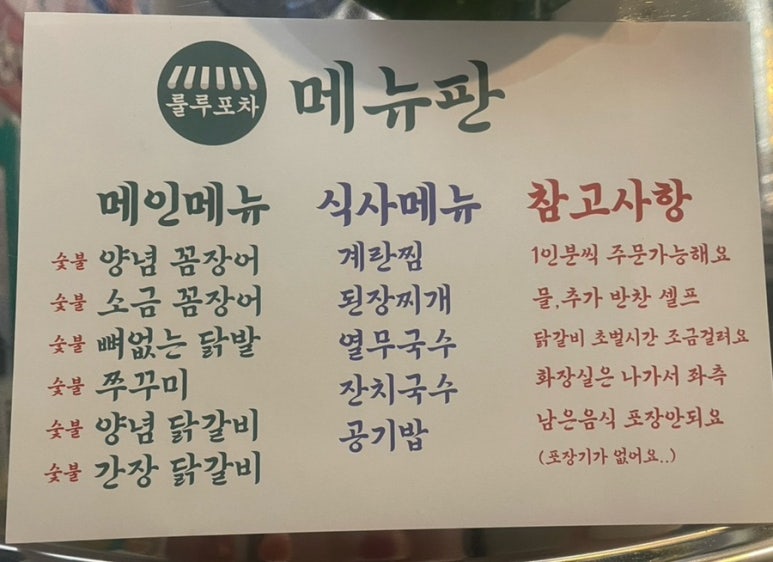 룰루포차
메뉴판
메인메뉴
숯불 양념 꼼장어
숯불 소금 꼼장어
숯불 뼈없는 닭발
숯불 쭈꾸미
숯불 양념 닭갈비
숯불 간장 닭갈비
식사메뉴
계란찜
된장찌개
열무국수
잔치국수
공기밥
참고사항
1인분씩 주문가능해요
물,추가 반찬 셀프
닭갈비 초벌시간 조금걸려요
화장실은 나가서 좌측
남은음식 포장안되요
(포장기가 없어요..)